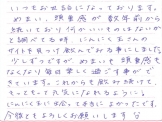 いつもお世話になっております。
めまい、頭重感が数年前から
続いており何かいいものはないか
と調べてる時、にんにく玉さんの
サイトを見つけ飲んでみる事にしました。
少しずつですが、めまいも頭重感も
なくなり毎日楽しく過ごす事がで
きています。これからも飲み続けて
もっともっと元気になれるように！
にんにく玉に出会って本当によかったです。
今後ともよろしくお願いします